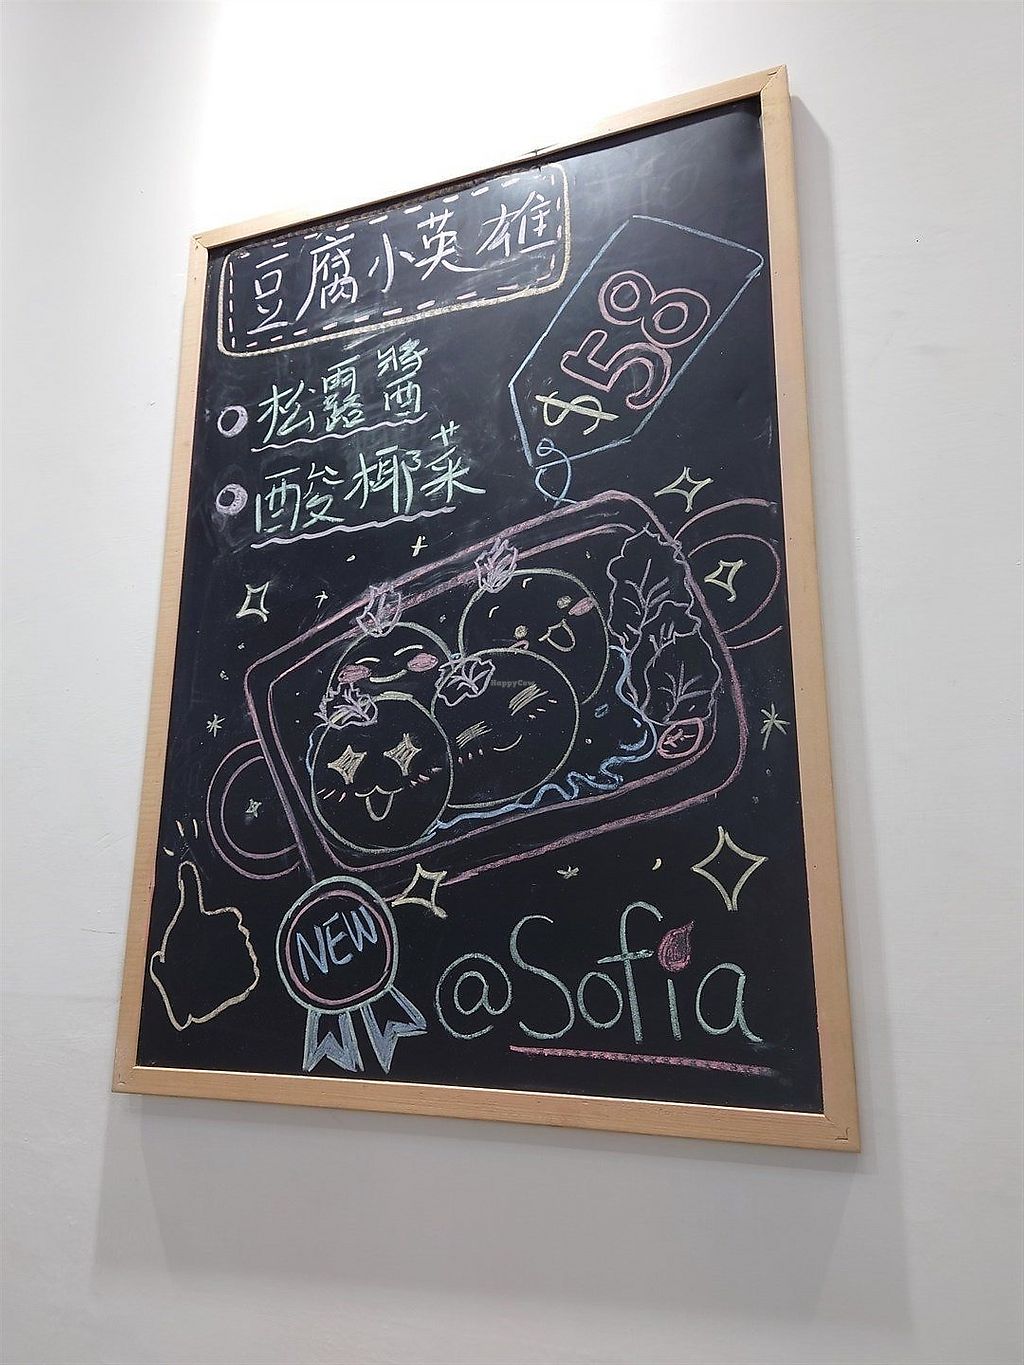 豆腐小英雄
$58
松露醬
酸椰菜
HappyCow
NEW
@Sofia